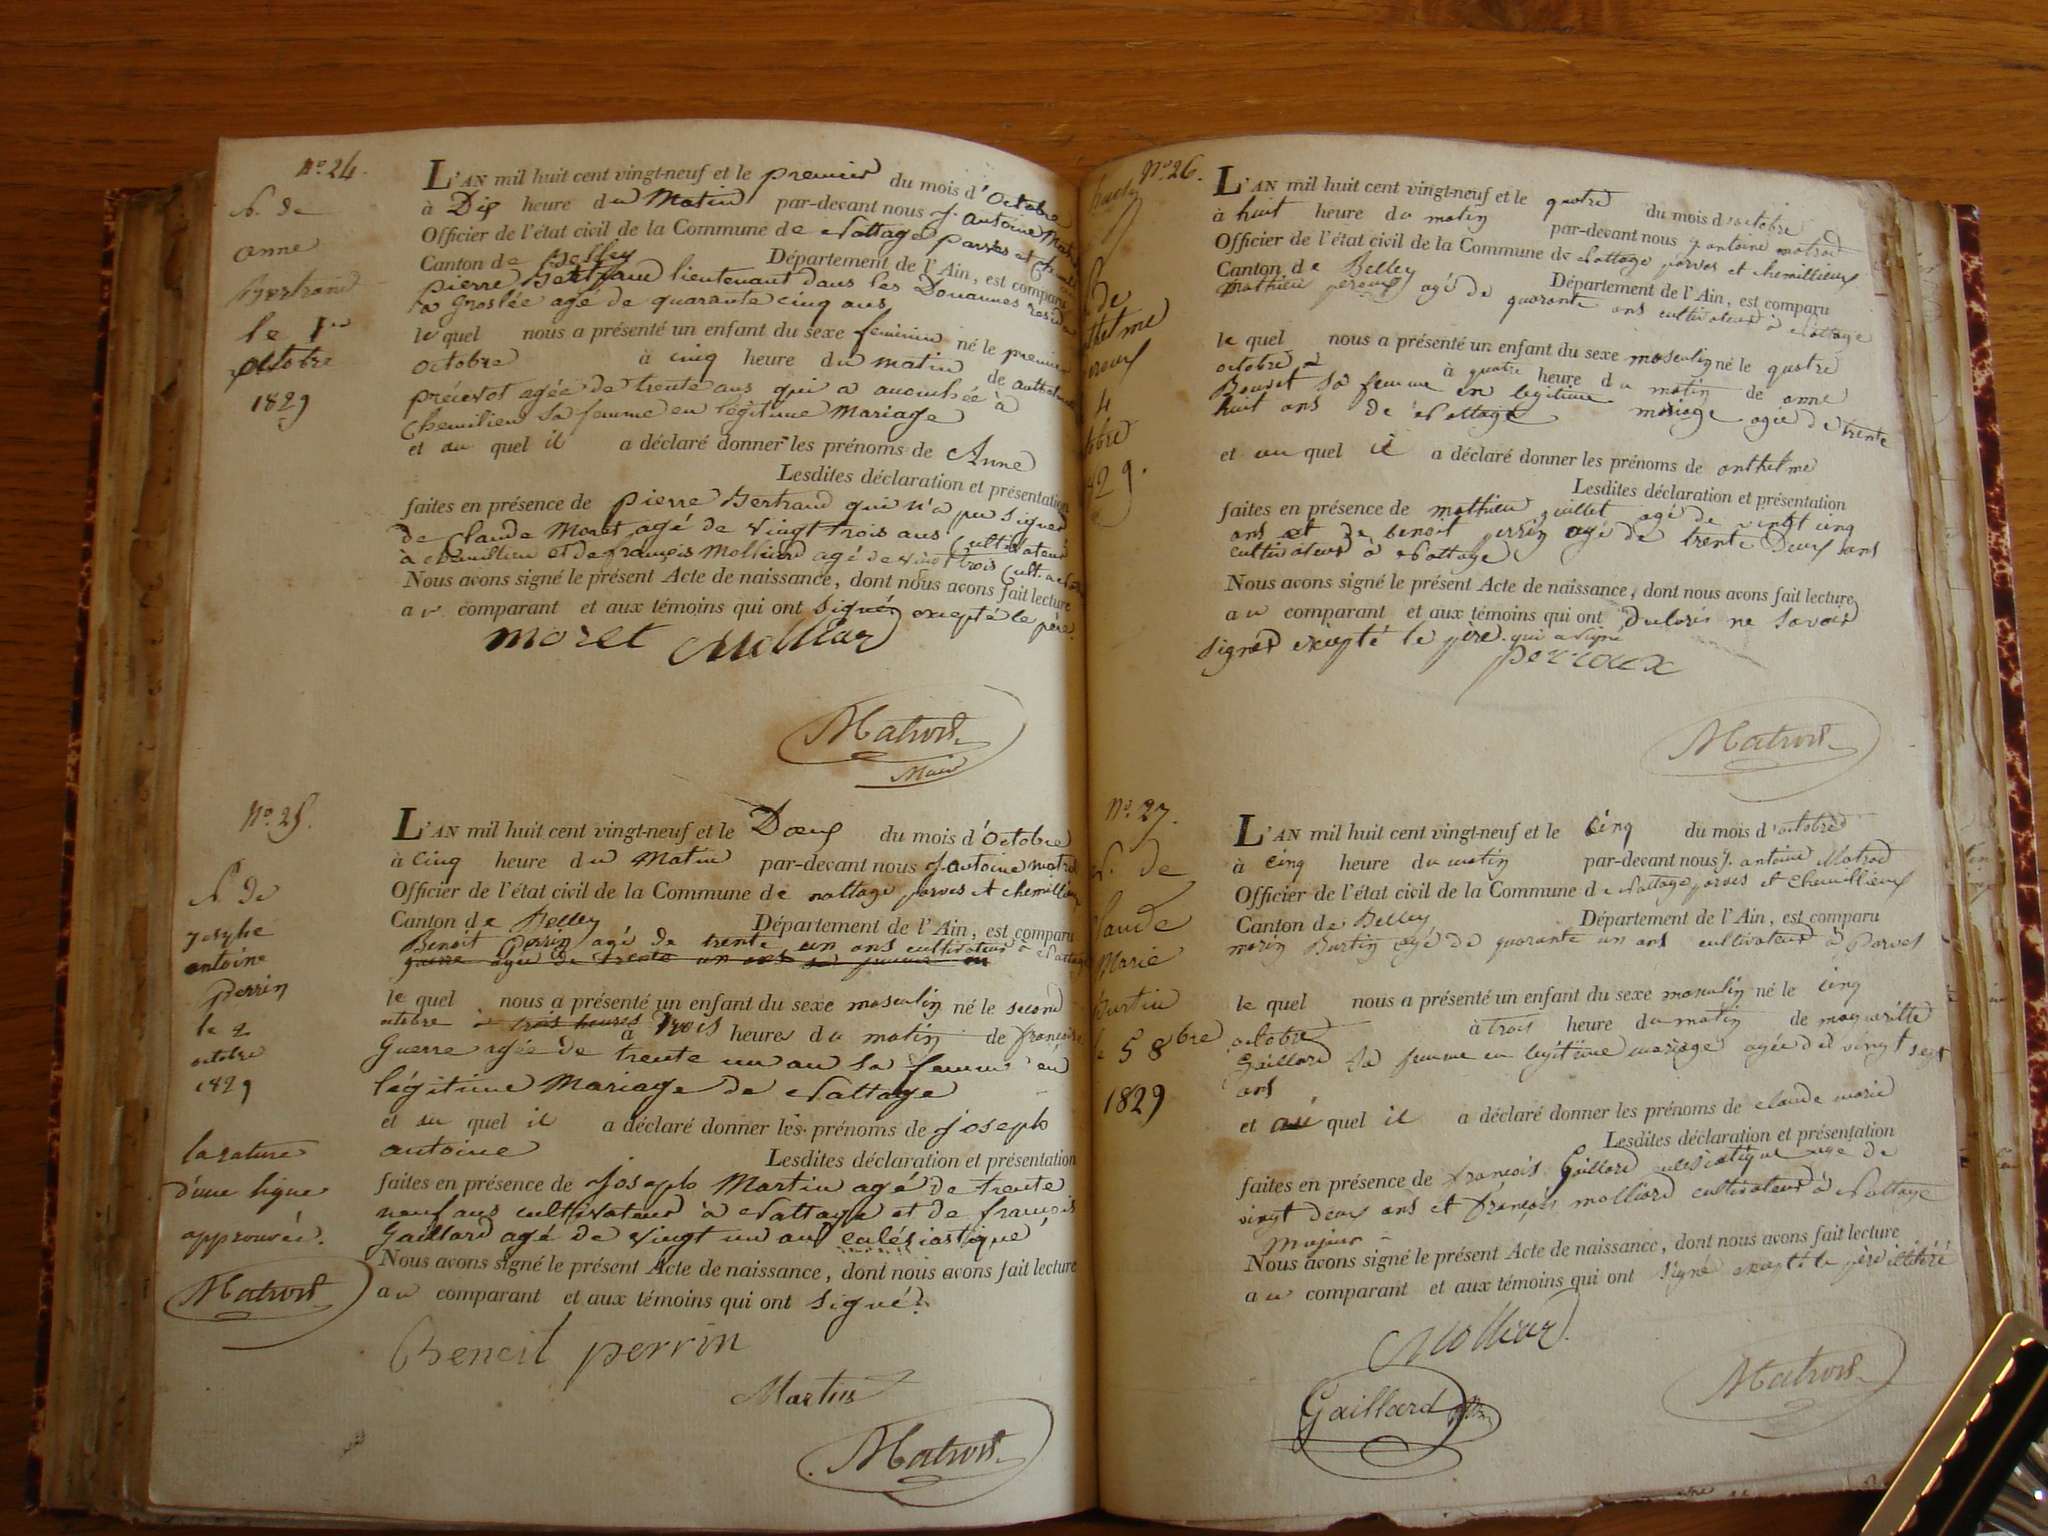 N.º 24.
N. de
anne
Bertrand
le 1er
octobre
1829
L'AN mil huit cent vingt-neuf et le premier du mois d'Octobre
à Dix heure du Matin par-devant nous J. Antoine
Officier de l'état civil de la Commune de Nattage parves et
Canton de Belley Département de l'Ain, est comparu
pierre lieutenant dans les Douannes
a Groslée agé de quarante cinq ans
le quel nous a présenté un enfant du sexe feminin né le premier
octobre à cinq heure du matin de
prévost agée de trente ans qui a accouchée à
Chemilieu sa femme en légitime Mariage
et au quel il a déclaré donner les prénoms de Anne
Lesdites déclaration et présentation
faites en présence de pierre Bertrand qui n'a pu signer
de Claude Moret agé de vingt trois ans Cultivateur
à chemilieu et de françois Molliard agé de vingt trois Cult.
Nous avons signé le présent Acte de naissance, dont nous avons fait lecture
au comparant et aux témoins qui ont signés excepté le père.
moret Molliar
Matrod
Maire
N.º 25.
N. de
josephe
antoine
perrin
le 2
octobre
1829
la rature
d'une ligne
approuvée.
Matrod
L'AN mil huit cent vingt-neuf et le Deux du mois d'Octobre
à cinq heure du Matin par-devant nous J. antoine matrod
Officier de l'état civil de la Commune de nattage parves et chemillieu
Canton de Belley Département de l'Ain, est comparu
Benoit Perrin agé de trente un ans cultivateur à Nattage
guerre agée de trente un ans sa femme en
le quel nous a présenté un enfant du sexe masculin né le second
octobre à trois heures à trois heures du matin de françoise
Guerre agée de trente un an sa femme en
légitime Mariage de Nattage
et au quel il a déclaré donner les prénoms de joseph
antoine Lesdites déclaration et présentation
faites en présence de joseph Martin agé de trente
neuf ans cultivateur à Nattage et de françois
Gaillard agé de vingt un ans eclésiastique
Nous avons signé le présent Acte de naissance, dont nous avons fait lecture
au comparant et aux témoins qui ont signé.
Benoit perrin
Martin
Matrod
N.º 26.
4
L'AN mil huit cent vingt-neuf et le quatre du mois d'octobre
à huit heure du matin par-devant nous J. antoine matrod
Officier de l'état civil de la Commune de Nattage parves et chemillieux
Canton de Belley Département de l'Ain, est comparu
mathieu peroux agé de quarante ans cultivateur à Nattage
le quel nous a présenté un enfant du sexe masculin né le quatre
octobre à quatre heure du matin de anne
Bouvet sa femme en legitime mariage agée de trente
huit ans de Nattage
et au quel il a déclaré donner les prénoms de anthelme
Lesdites déclaration et présentation
faites en présence de mathieu juillet agé de vingt cinq
ans et de benoit perrin agé de trente deux ans
cultivateur à Nattage
Nous avons signé le présent Acte de naissance, dont nous avons fait lecture
au comparant et aux témoins qui ont declaré ne savoir
signer excepté le père qui a signé
perroux
Matrod
N.º 27.
N. de
Claude
Marie
Burtin
le 5 8bre
1829
L'AN mil huit cent vingt-neuf et le cinq du mois d'octobre
à cinq heure du matin par-devant nous J. antoine Matrod
Officier de l'état civil de la Commune de Nattage parves et chemillieux
Canton de Belley Département de l'Ain, est comparu
Burtin agé de quarante un ans cultivateur à Parves
le quel nous a présenté un enfant du sexe masculin né le cinq
octobre à trois heure du matin de margueritte
Gaillard sa femme en legitime mariage agée de vingt sept
ans
et au quel il a déclaré donner les prénoms de claude marie
Lesdites déclaration et présentation
faites en présence de françois Gaillard eclesiatique age de
vingt deux ans et françois molliard cultivateur à Nattage
majeur
Nous avons signé le présent Acte de naissance, dont nous avons fait lecture
au comparant et aux témoins qui ont signé excepté le père illitéré
Molliar
Gaillard
Matrod